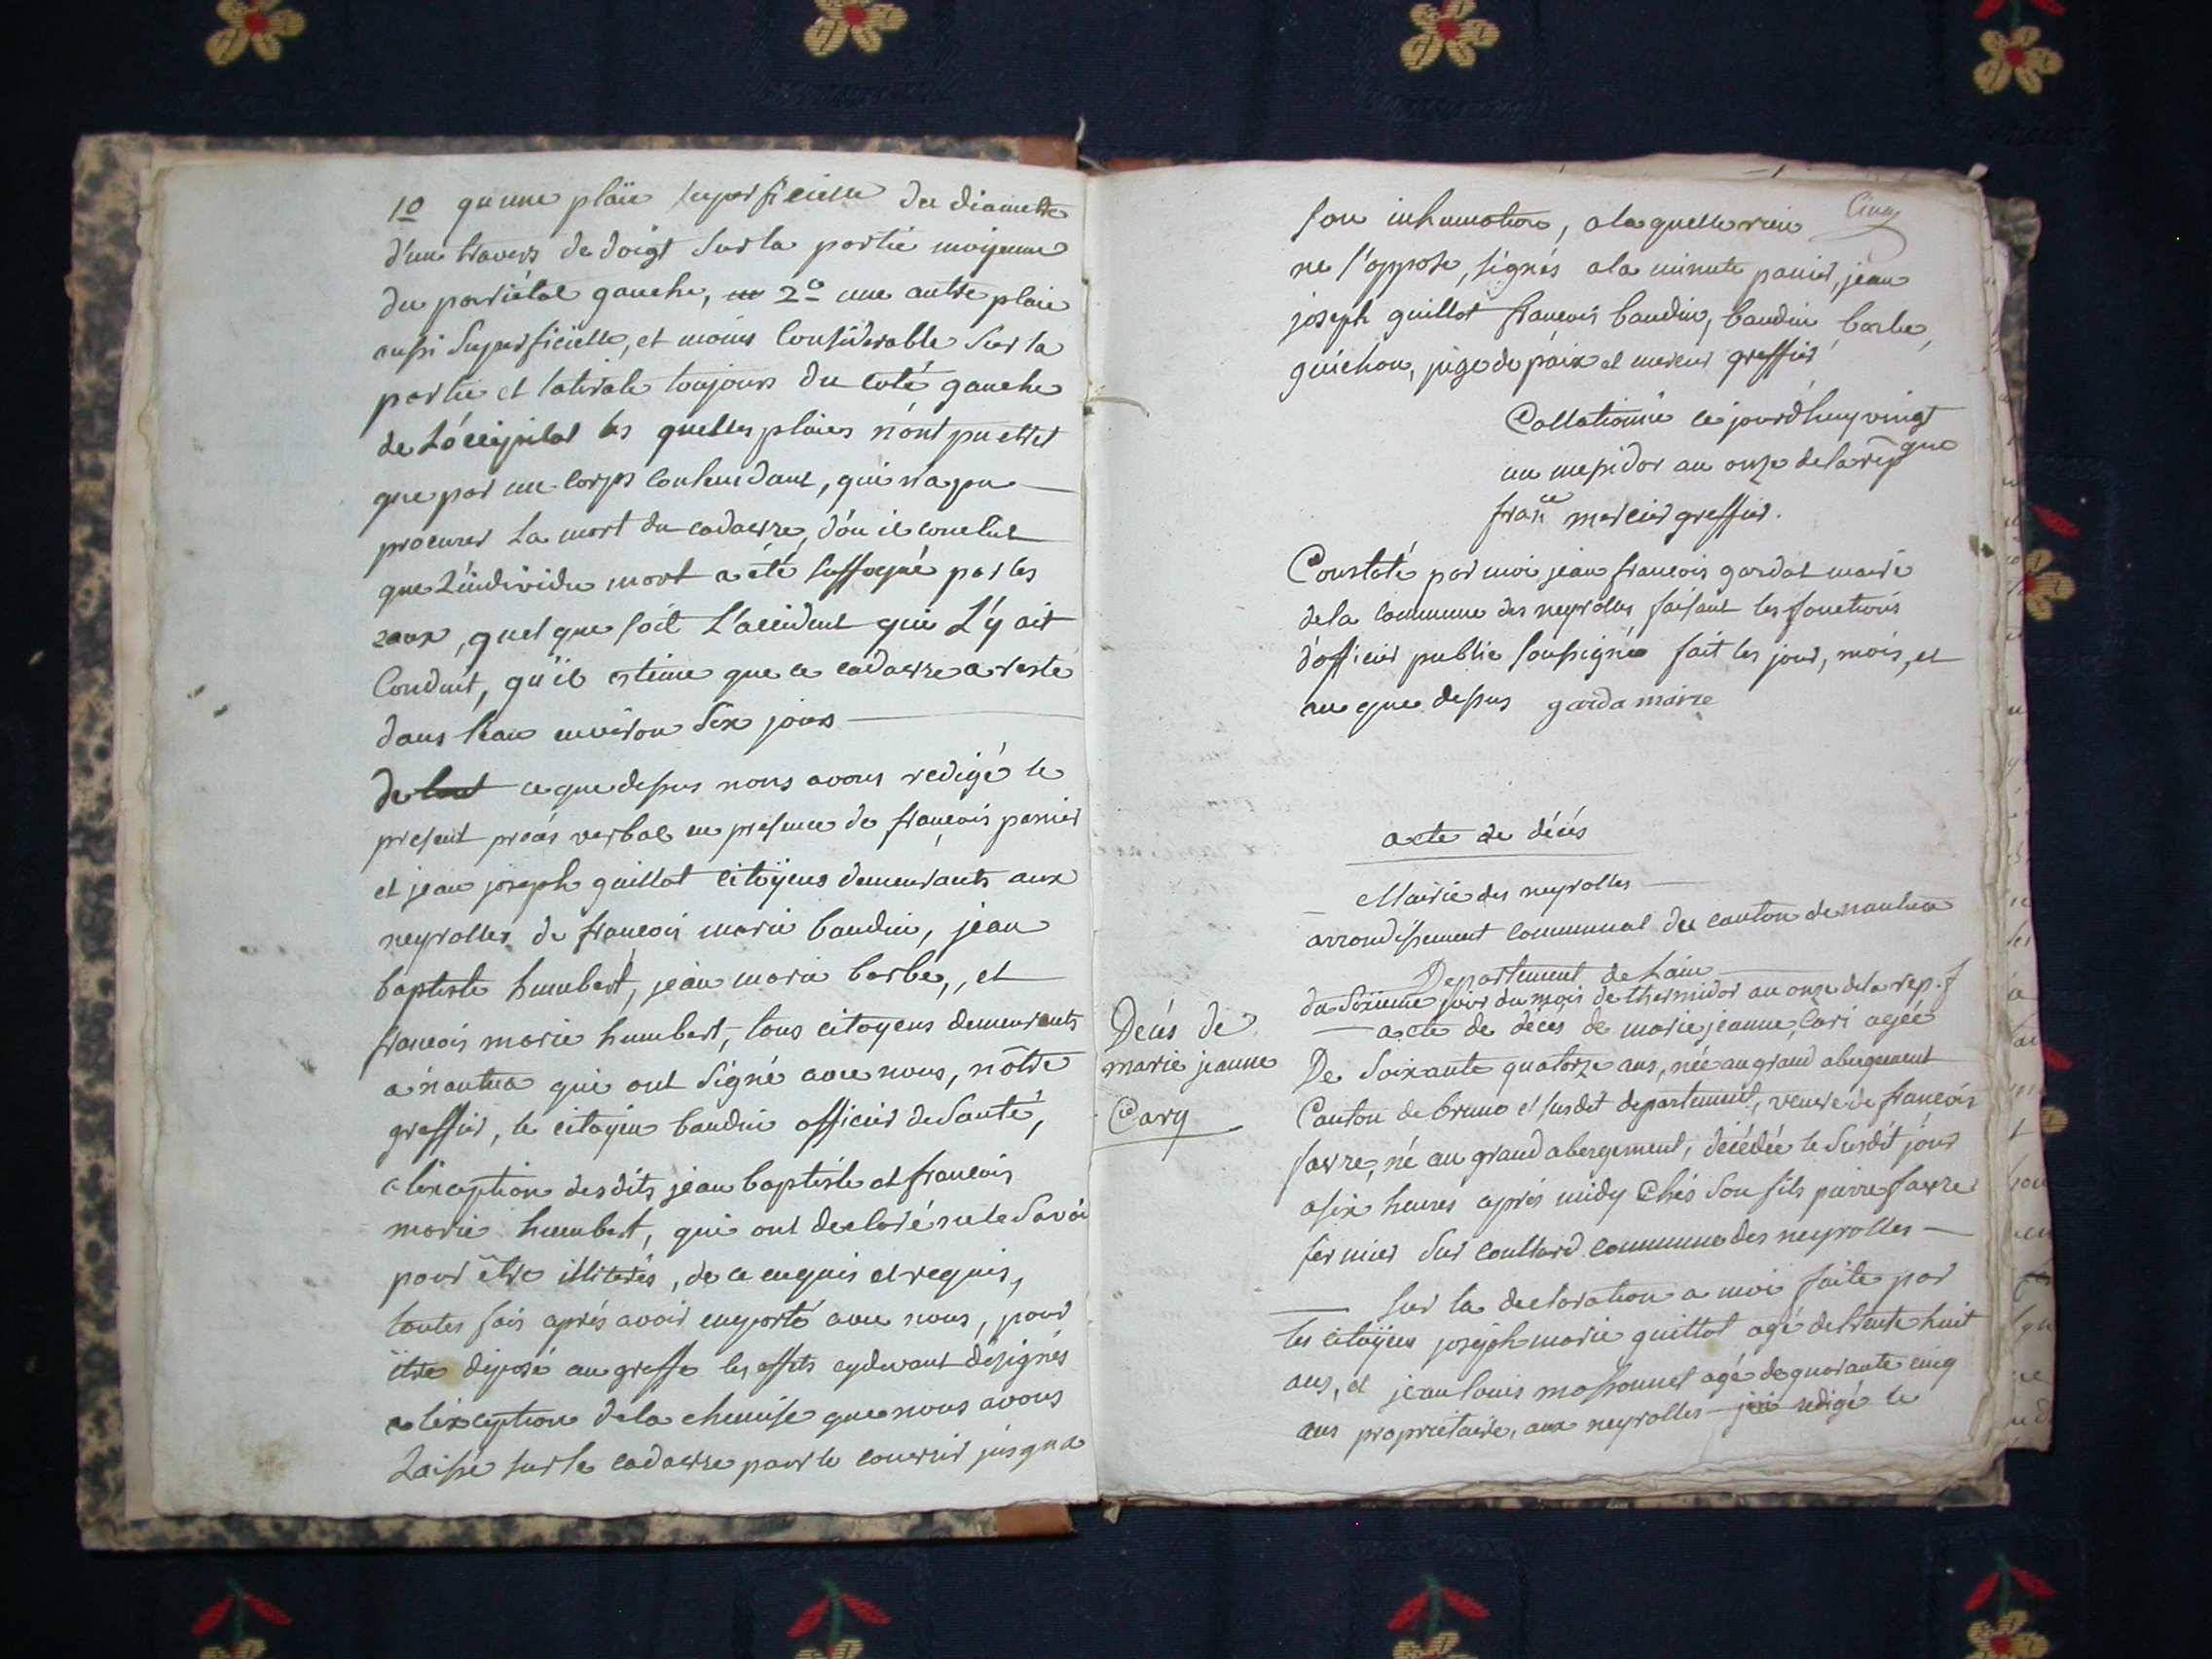 1o qu'une plaïe superficielle du diamettre
d'un travers de doigt sur la partie moÿenne
du pariétal gauche, 2o une autre plaie
aussi superficielle, et moins considerable sur la
partie et laterale toujours du coté gauche
de L'óccipital les quelles plaies n'ont pu etre
que par un corps contundant, qui n'a pu
procurer La mort du cadavre, d'ou il conclut
que L'individu mort a été suffoqué par les
eaux, quel que soit L'accident qui L'y ait
Conduit, qu'il estime que ce cadavre a resté
dans l'eau environ Six jours
de tout ce que dessus nous avons redigé le
present procés verbal en presence de françois panier
et jean joseph guillot citoÿens demeurants aux
neyrolles de francois marie baudin, jean
baptiste humbert, jean marie barbe, et
francois marie humbert, tous citoyens demeurants
a nantua qui ont Signé avec nous, nôtre
greffier, le citoyen baudin officier de Santé,
a l'exception desdits jean baptiste et francois
marie humbert, qui ont declaré ne le Savoir
pour être illiterés, de ce enquis et requis,
toutes fois aprés avoir emporté avec nous, pour
être déposé au greffe les effets cydevant désignés
a l'exception de la chemise que nous avons
Laissé sur le cadavre pour le couvrir jusqu'a
Cinq
son inhumation, a la quelle rien
ne s'oppose, signés a la minute panier, jean
joseph guillot francois baudin, baudin barbe,
guichon, juge de paix et mercier greffier
Collationné ce jourd'huy vingt
un messidor an onze de la repque
france mercier greffier.
Constaté par moi jean francois gardat maire
de la commune des neyrolles faisant les fonctions
d'officier public soussigné fait les jour, mois, et
an que dessus garda maire
acte de décés
Mairie des neyrolles
arrondissement communal du canton de nantua
Departement de Lain
du Sixieme jour du mois de thermidor an onze de la rep. f
acte de décés de marie jeanne Cari agée
Decés de
marie jeanne
Cary
De Soixante quatorze ans, née au grand abergement
Canton de brenod et susdit departement, veuve de francois
favre, né au grand abergement, décédée le Susdit jour
a six heures aprés midy Chés Son fils pierre favre
fermier Sur coultard commune des neyrolles
Sur la declaration a moi faite par
les citoÿens joseph marie guillot agé de trente huit
ans, et jean louis massonnet agé de quarante cinq
ans propriétaire, aux neyrolles j'ai redigé le